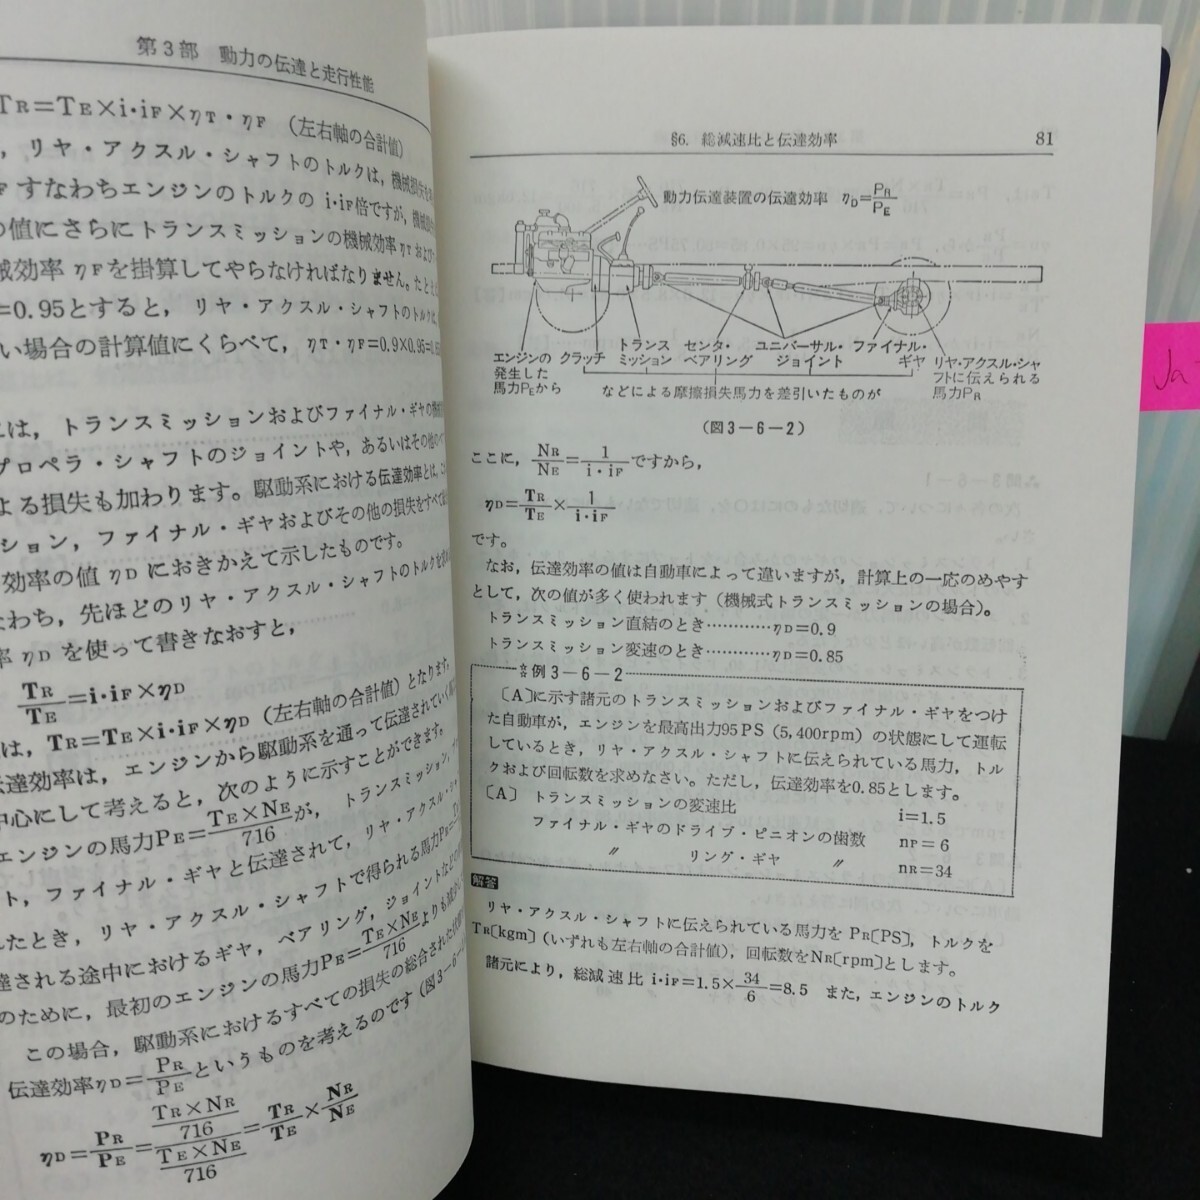 第3部 動力の伝達と走行性能
TR=TE×i・iF×ηT・ηF (左右軸の合計値)
，リヤ・アクスル・シャフトのトルクは，機械損失を
F すなわちエンジンのトルクの i・iF倍ですが，機械
の値にさらにトランスミッションの機械効率 ηT および
械効率 ηF を掛算してやらなければなりません。たと
=0.95とすると， リヤ・アクスル・シャフトのトルクは，
い場合の計算値にくらべて，ηT・ηF=0.9×0.95=0.
には，トランスミッションおよびファイナル・ギヤの
プロペラ・シャフトのジョイントや，あるいはその他の
よる損失も加わります。駆動系における伝達効率とは，
ション，ファイナル・ギヤおよびその他の損失をすべて
効率の値 ηD におきかえて示したものです。
なわち，先ほどのリヤ・アクスル・シャフトのトルクを
率 ηD を使って書きなおすと，
TR/TE=i・iF×ηD
は，TR=TE×i・iF×ηD (左右軸の合計値) となります。
伝達効率は，エンジンから駆動系を通って伝達されていく
中心にして考えると，次のように示すことができます。
エンジンの馬力PE=TE×NE/716が， トランスミッション，
ト，ファイナル・ギヤと伝達されて， リヤ・アクスル・
したとき，リヤ・アクスル・シャフトで得られる馬力PR=
達される途中におけるギヤ，ベアリング，ジョイントなどの
のために，最初のエンジンの馬力PE=TE×NE/716よりも
この場合，駆動系におけるすべての損失の総合された
伝達効率ηD=PR/PEというものを考えるのです (図3-6-
ηD=PR/PE=(TR×NR/716)/(TE×NE/716)=TR/TE×NR/NE
§6. 総減速比と伝達効率 81
動力伝達装置の伝達効率 ηD=PR/PE
エンジンの発生した馬力PEから
クラッチ
トランスミッション
センタ・ベアリング
ユニバーサル・ジョイント
ファイナル・ギヤ
などによる摩擦損失馬力を差引いたものが
リヤ・アクスル・シャフトに伝えられる馬力PR
(図3-6-2)
ここに，NR/NE=1/i・iFですから，
ηD=TR/TE×1/i・iF
です。
なお，伝達効率の値は自動車によって違いますが，計算上の一応のめやす
として，次の値が多く使われます (機械式トランスミッションの場合)。
トランスミッション直結のとき…………ηD=0.9
トランスミッション変速のとき…………ηD=0.85
例3-6-2
〔A〕に示す諸元のトランスミッションおよびファイナル・ギヤをつけ
た自動車が，エンジンを最高出力95PS (5,400rpm) の状態にして運転
しているとき，リヤ・アクスル・シャフトに伝えられている馬力，トル
クおよび回転数を求めなさい。ただし，伝達効率を0.85とします。
〔A〕 トランスミッションの変速比 i=1.5
ファイナル・ギヤのドライブ・ピニオンの歯数 nP=6
〃 リング・ギヤ 〃 nR=34
解答
リヤ・アクスル・シャフトに伝えられている馬力を PR〔PS〕，トルクを
TR〔kgm〕(いずれも左右軸の合計値)，回転数をNR〔rpm〕とします。
諸元により，総減速比 i・iF=1.5×34/6=8.5 また，エンジンのトルク
Ja